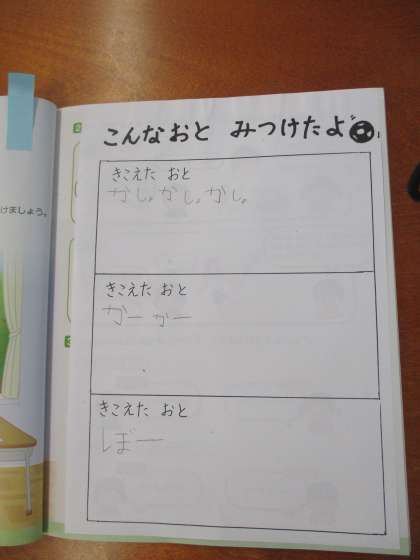 こんなおと みつけたよ
きこえた おと
かし。かし。かし。
きこえた おと
かー かー
きこえた おと
ぼー
けましょう。
2
3